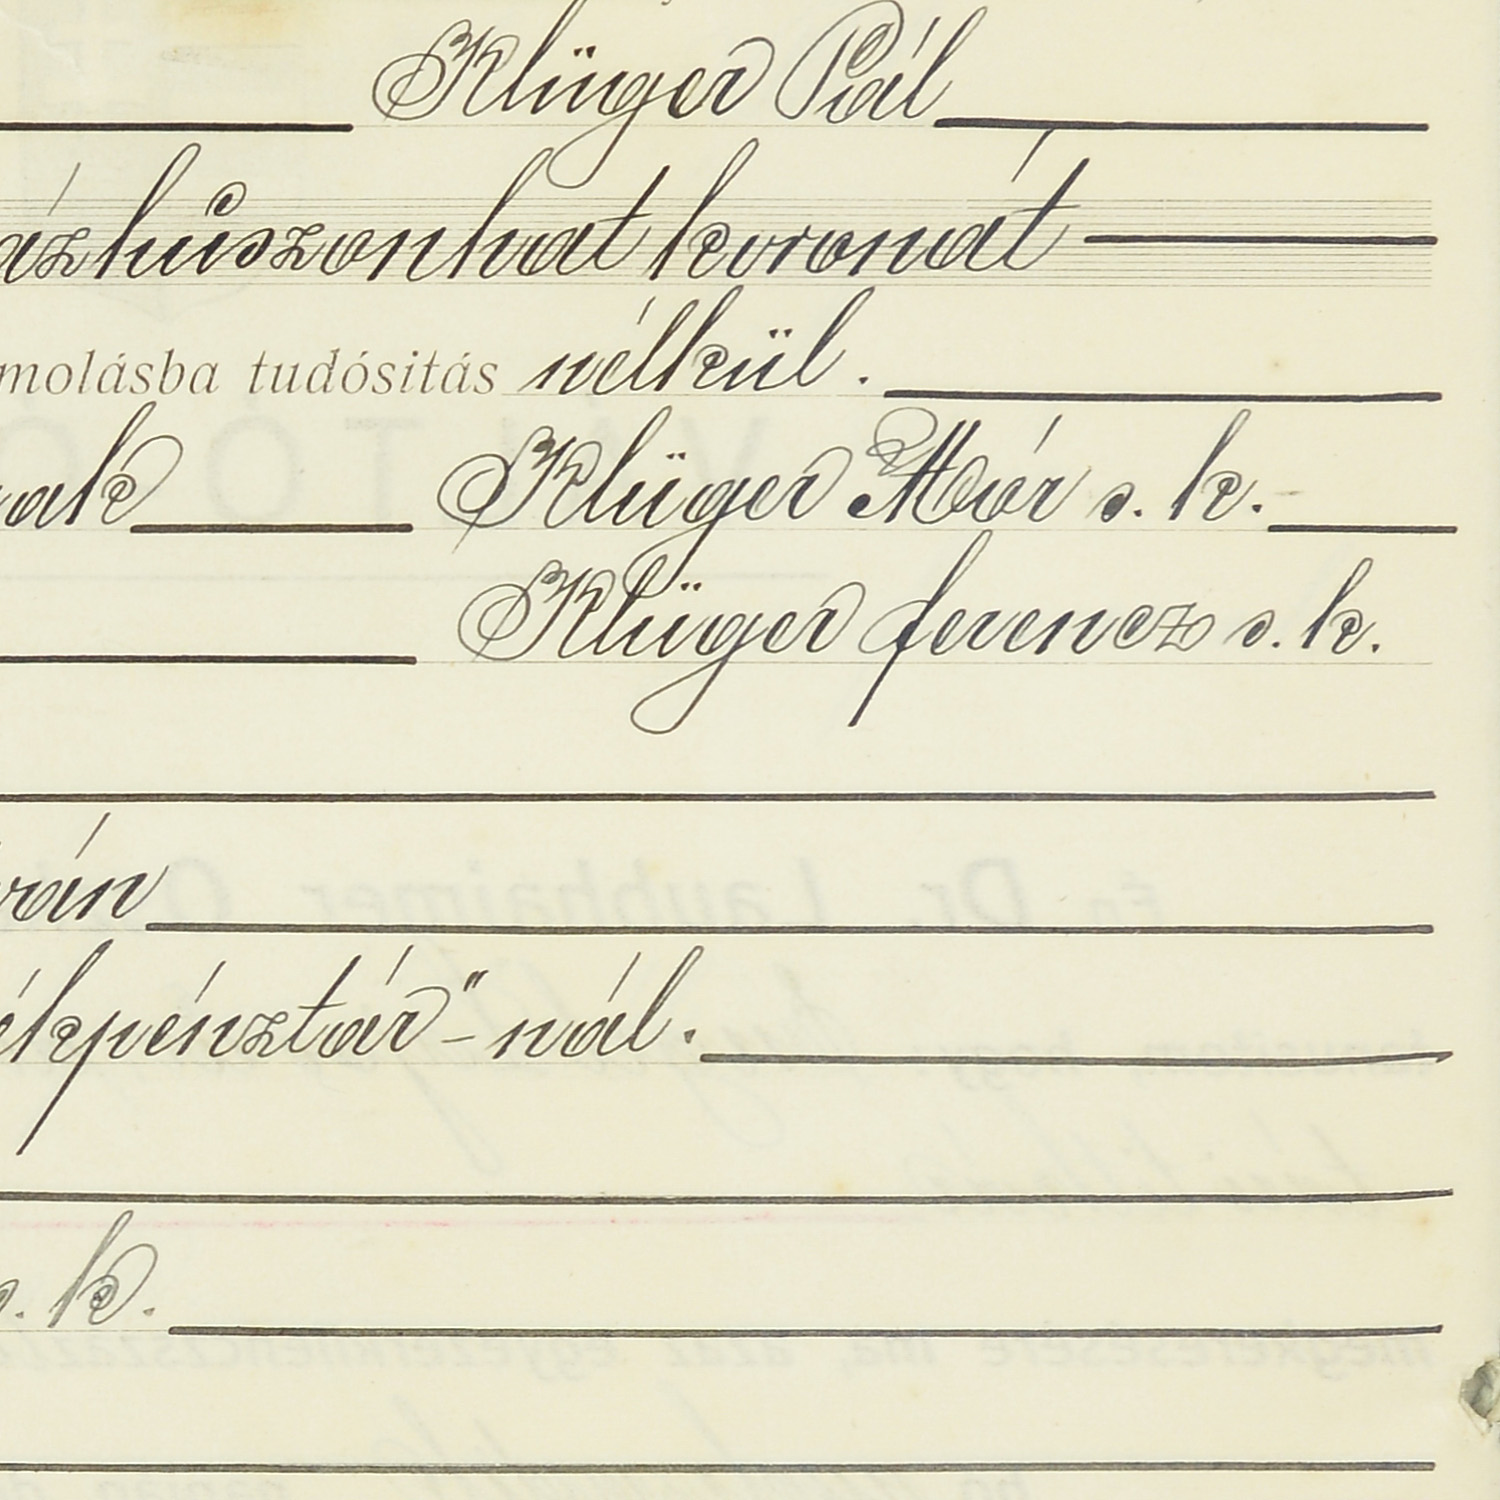 Klüger Pál
ázhúszonhat koronát
molásba tudósitás nélkül.
nak Klüger Mór s. k.
Klüger Ferencz s. k.
rán
ékpénztár"-nál.
s. k.